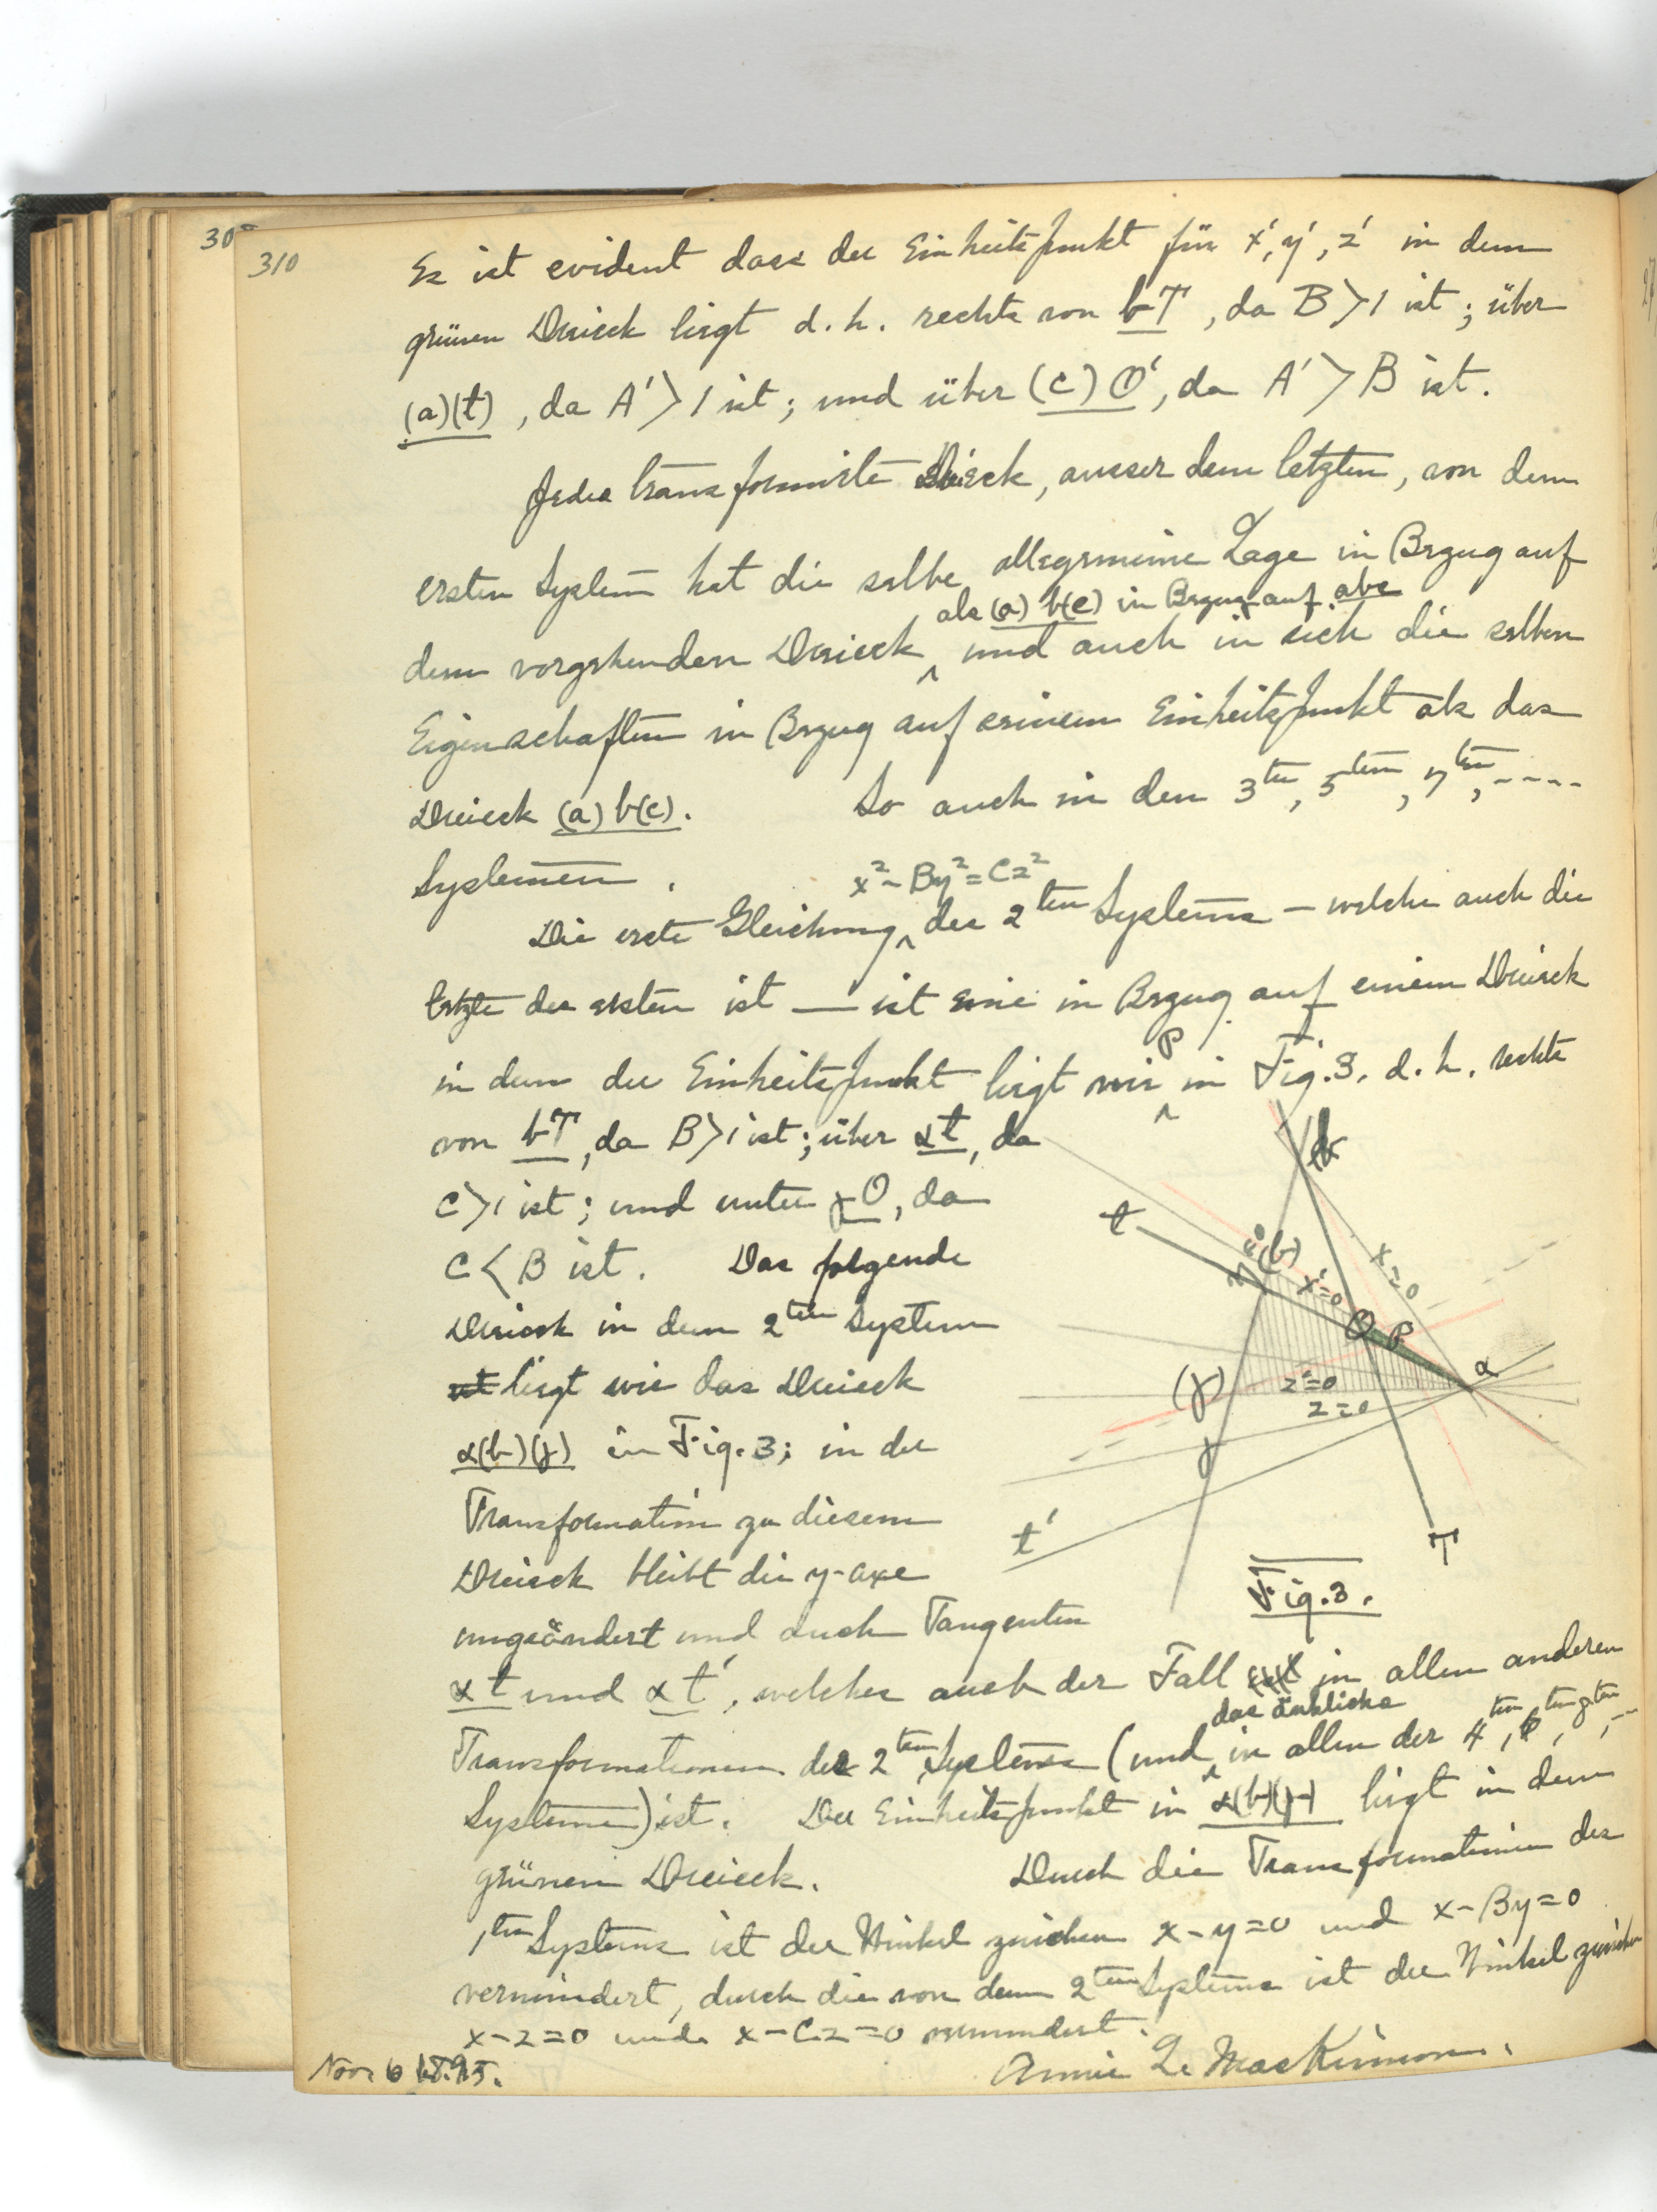 308
310
Es ist evident dass der Einheitspunkt für x', y', z' in dem
grünen Dreieck liegt d. h. rechts von bT, da B > 1 ist; über
(a)(t), da A' > 1 ist; und über (c) O', da A' > B ist.
Jedes transformirte Dreieck, ausser dem letzten, von dem
ersten System hat die selbe allegemeine Lage in Bezug auf
als (a) b(c) in Bezug auf abc
dem vorgehenden Dreieck ^ und auch in sich die selben
Eigenschaften in Bezug auf seinem Einheitspunkt als das
Dreieck (a) b(c). So auch in den 3ten, 5ten, 7ten, ----
Systemen.
x² - By² = Cz²
Die erste Gleichung ^ des 2ten Systems — welche auch die
letzte des ersten ist — ist eine in Bezug auf einem Dreieck
in dem der Einheitspunkt liegt wie P in Fig. 3. d. h. rechts
von bT, da B > 1 ist; über αt, da
C > 1 ist; und unter γO, da
C < B ist. Das folgende
Dreieck in dem 2ten System
liegt wie das Dreieck
α(b)(γ) in Fig. 3; in der
Transformation zu diesem
Dreieck bleibt die y-axe
ungeändert und auch Tangenten
αt und αt', welches auch der Fall in allen anderen
das änhliche
Transformationen des 2ten Systems (und ^ in allen der 4ten, 6ten, 8ten, --
Systeme) ist. Der Einheitspunkt in α(b)(γ) liegt in dem
grünen Dreieck. Durch die Transformationen des
1ten Systems ist der Winkel zwischen x - y = 0 und x - By = 0
vermindert, durch die von dem 2ten Systems ist der Winkel zwischen
x - z = 0 und x - Cz = 0 vermindert.
Nov. 6 1895.
Annie L. MacKinnon.
b
t
(b)
x = 0
x' = 0
O
P
α
(γ)
z' = 0
z = 0
γ
t'
T
Fig. 3.